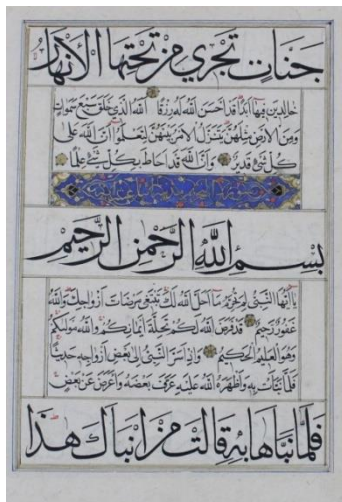 جَنَّاتٍ تَجْرِي مِنْ تَحْتِهَا الْأَنْهَارُ
خَالِدِينَ فِيهَا أَبَدًا قَدْ أَحْسَنَ اللَّهُ لَهُ رِزْقًا اللَّهُ الَّذِي خَلَقَ سَبْعَ سَمٰوَاتٍ
وَمِنَ الْأَرْضِ مِثْلَهُنَّ يَتَنَزَّلُ الْأَمْرُ بَيْنَهُنَّ لِتَعْلَمُوا أَنَّ اللَّهَ عَلَى
كُلِّ شَيْءٍ قَدِيرٌ وَأَنَّ اللَّهَ قَدْ أَحَاطَ بِكُلِّ شَيْءٍ عِلْمًا
بِسْمِ اللَّهِ الرَّحْمٰنِ الرَّحِيمِ
يَا أَيُّهَا النَّبِيُّ لِمَ تُحَرِّمُ مَا أَحَلَّ اللَّهُ لَكَ تَبْتَغِي مَرْضَاتَ أَزْوَاجِكَ وَاللَّهُ
غَفُورٌ رَحِيمٌ قَدْ فَرَضَ اللَّهُ لَكُمْ تَحِلَّةَ أَيْمَانِكُمْ وَاللَّهُ مَوْلَيكُمْ
وَهُوَ الْعَلِيمُ الْحَكِيمُ وَإِذْ أَسَرَّ النَّبِيُّ إِلَى بَعْضِ أَزْوَاجِهِ حَدِيثًا
فَلَمَّا نَبَّأَتْ بِهِ وَأَظْهَرَهُ اللَّهُ عَلَيْهِ عَرَّفَ بَعْضَهُ وَأَعْرَضَ عَنْ بَعْضٍ
فَلَمَّا نَبَّأَهَا بِهِ قَالَتْ مَنْ أَنْبَأَكَ هٰذَا